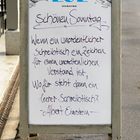 Schönen Sonntag
Wenn ein unordentlicher
Schreibtisch ein Zeichen
für einen unordentlichen
Verstand ist,
Wofür steht dann ein
leerer Schreibtisch?
Albert Einstein